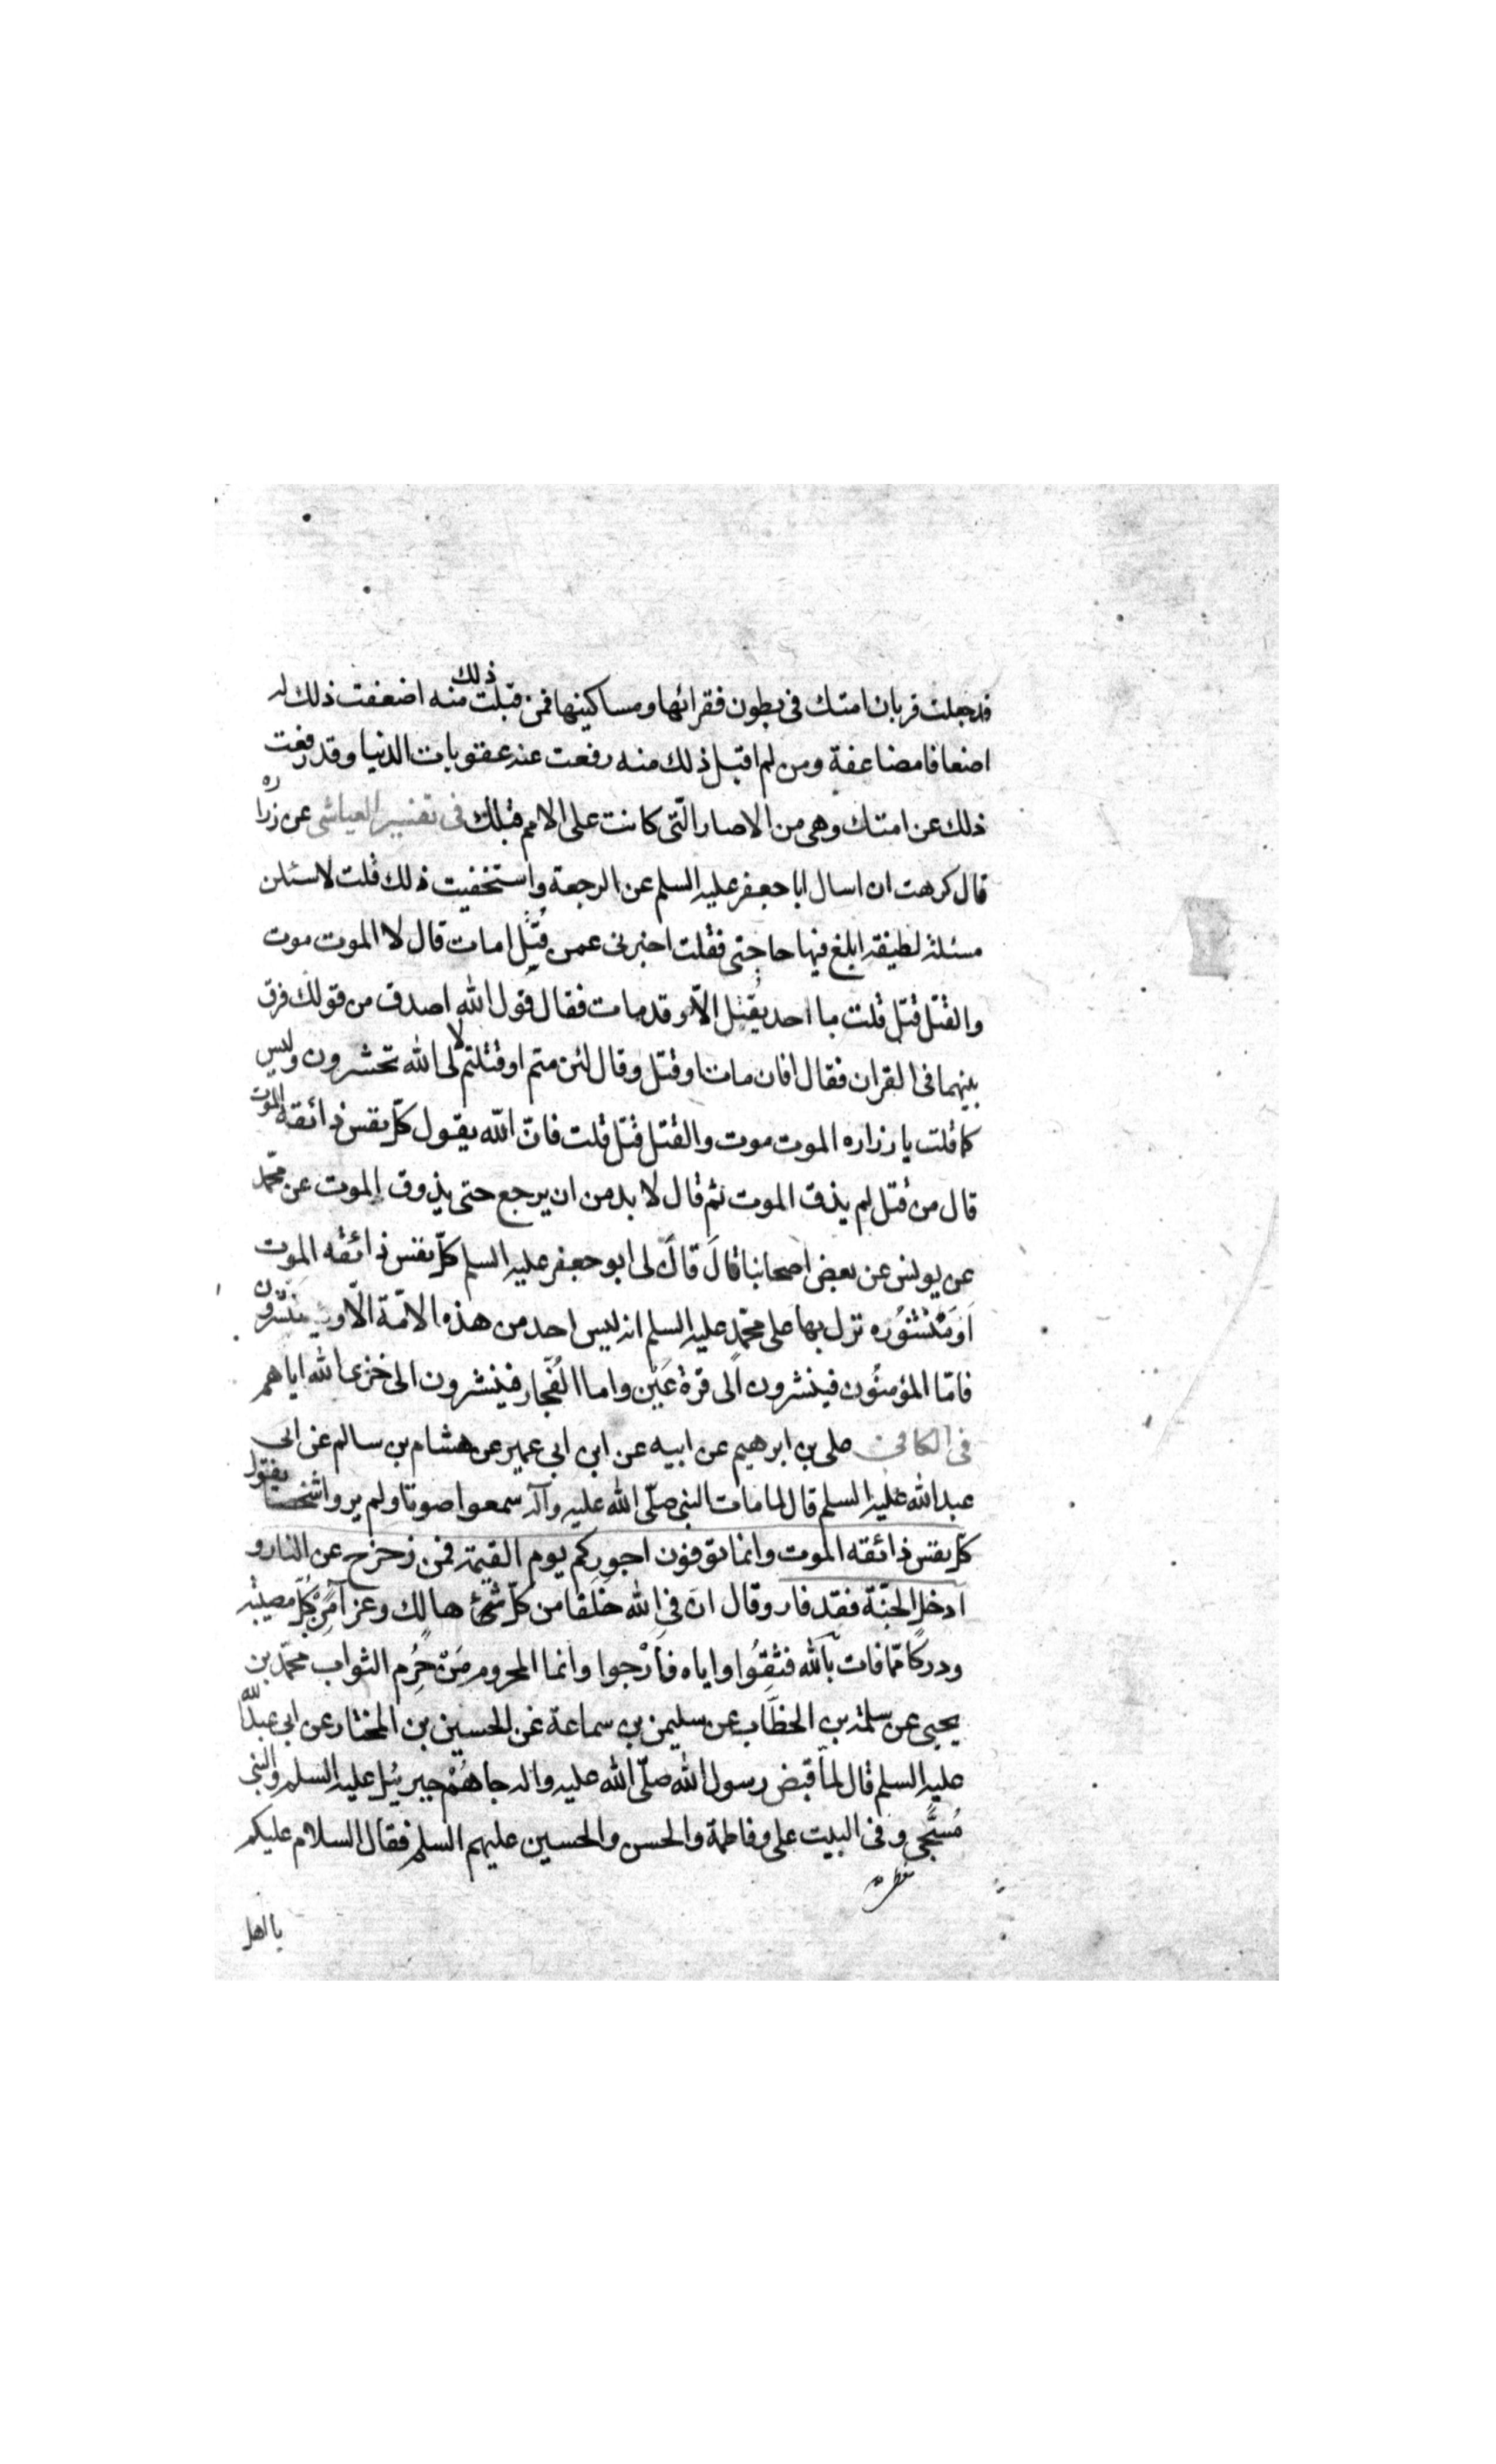 قد جعلت قربان امتك فى بطون فقرائها ومساكينها فمن قبلت ذلك منه اضعفت ذلك له
اضعافا مضاعفة ومن لم اقبل ذلك منه رفعت عنه عقوبات الدنيا وقد رفعت
ذلك عن امتك وهى من الاصار الّتى كانت على الامم قبلك فى تفسير العياشى عن زراره
قال كرهت ان اسال ابا جعفر عليه السلم عن الرجعة واستخفيت ذلك قلت لاسئلن
مسئلة لطيفة ابلغ فيها حاجتى فقلت اخبرنى عمن قُتِل امات قال لا الموت موت
والقتل قتل قلت ما احد يُقتل الّا وقد مات فقال قول الله اصدق من قولك فرق
بينهما فى القران فقال افان مات او قتل وقال لئن متم او قتلتم لالى الله تحشرون وليس
كما قلت يا زراره الموت موت والقتل قتل قلت فانّ الله يقول كلّ نفس ذائقه الموت
قال من قتل لم يذق الموت ثم قال لا بد من ان يرجع حتى يذوق الموت عن محمّد
عن يونس عن بعض اصحابنا قالَ قالَ لى ابو جعفر عليه السلم كلّ نفس ذائقه الموت
اَو مَنْشُوُره نزل بها على محمّدٍ عليه السلم انه ليس احد من هذه الامّة الّا و ينشرون
فامّا المؤمنُون فينشرون الى قرة عَيْن واما الفُجّار فينشرون الى خزى الله اياهم
فى الكافى على بن ابرهيم عن ابيه عن ابن ابى عمير عن هشام بن سالم عن ابى
عبدالله عليه السلم قال لما مات النبى صلّى الله عليه وآله سمعوا صوتا ولم يروا شخصا يقول
كلّ نفس ذائقه الموت وانما توفون اجوركم يوم القيمة فمن زحزح عن النار و
ادخل الجنّة فقد فاز وقال ان فى الله خَلَفا من كلّ شئ هالك وعزآمِن كُلّ مصيبة
ودركا ممّا فات بالله فثِقُوا واياه فاَرْجوا وانما المحروم مَن حُرِم الثواب محمّد بن
يحيى عن سلمة بن الخطّاب عن سليمن بن سماعة عن الحسين بن المختار عن ابى عبدالله
عليه السلم قال لمّا قبض رسول الله صلّى الله عليه واله جاهُمْ جبريئل عليه السلم والنبى
مُسَجّى وفى البيت على وفاطمة والحسن والحسين عليهم السلم فقال السلام عليكم
يا اهل